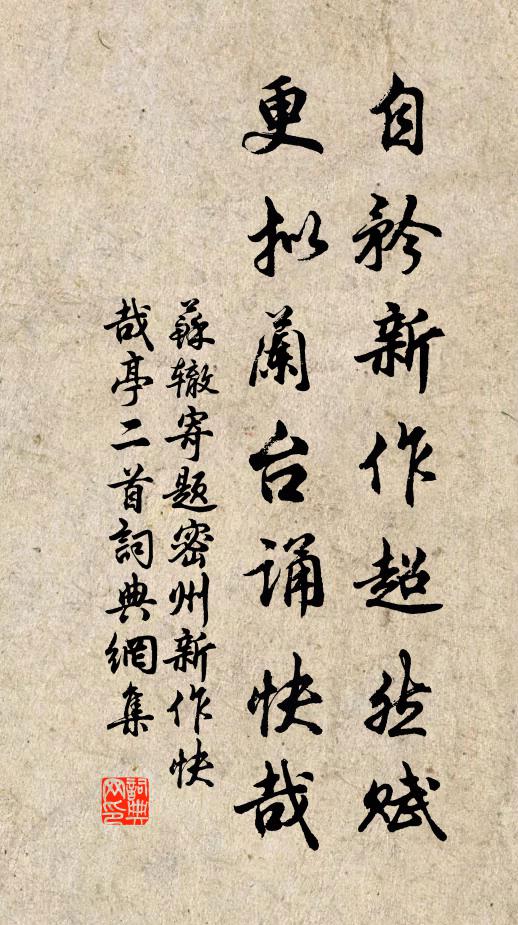 自矜新作超然赋
更拟蘭台诵快哉
蘇辙寄题密州新作快
哉亭二首詞典網集
詞典
网印